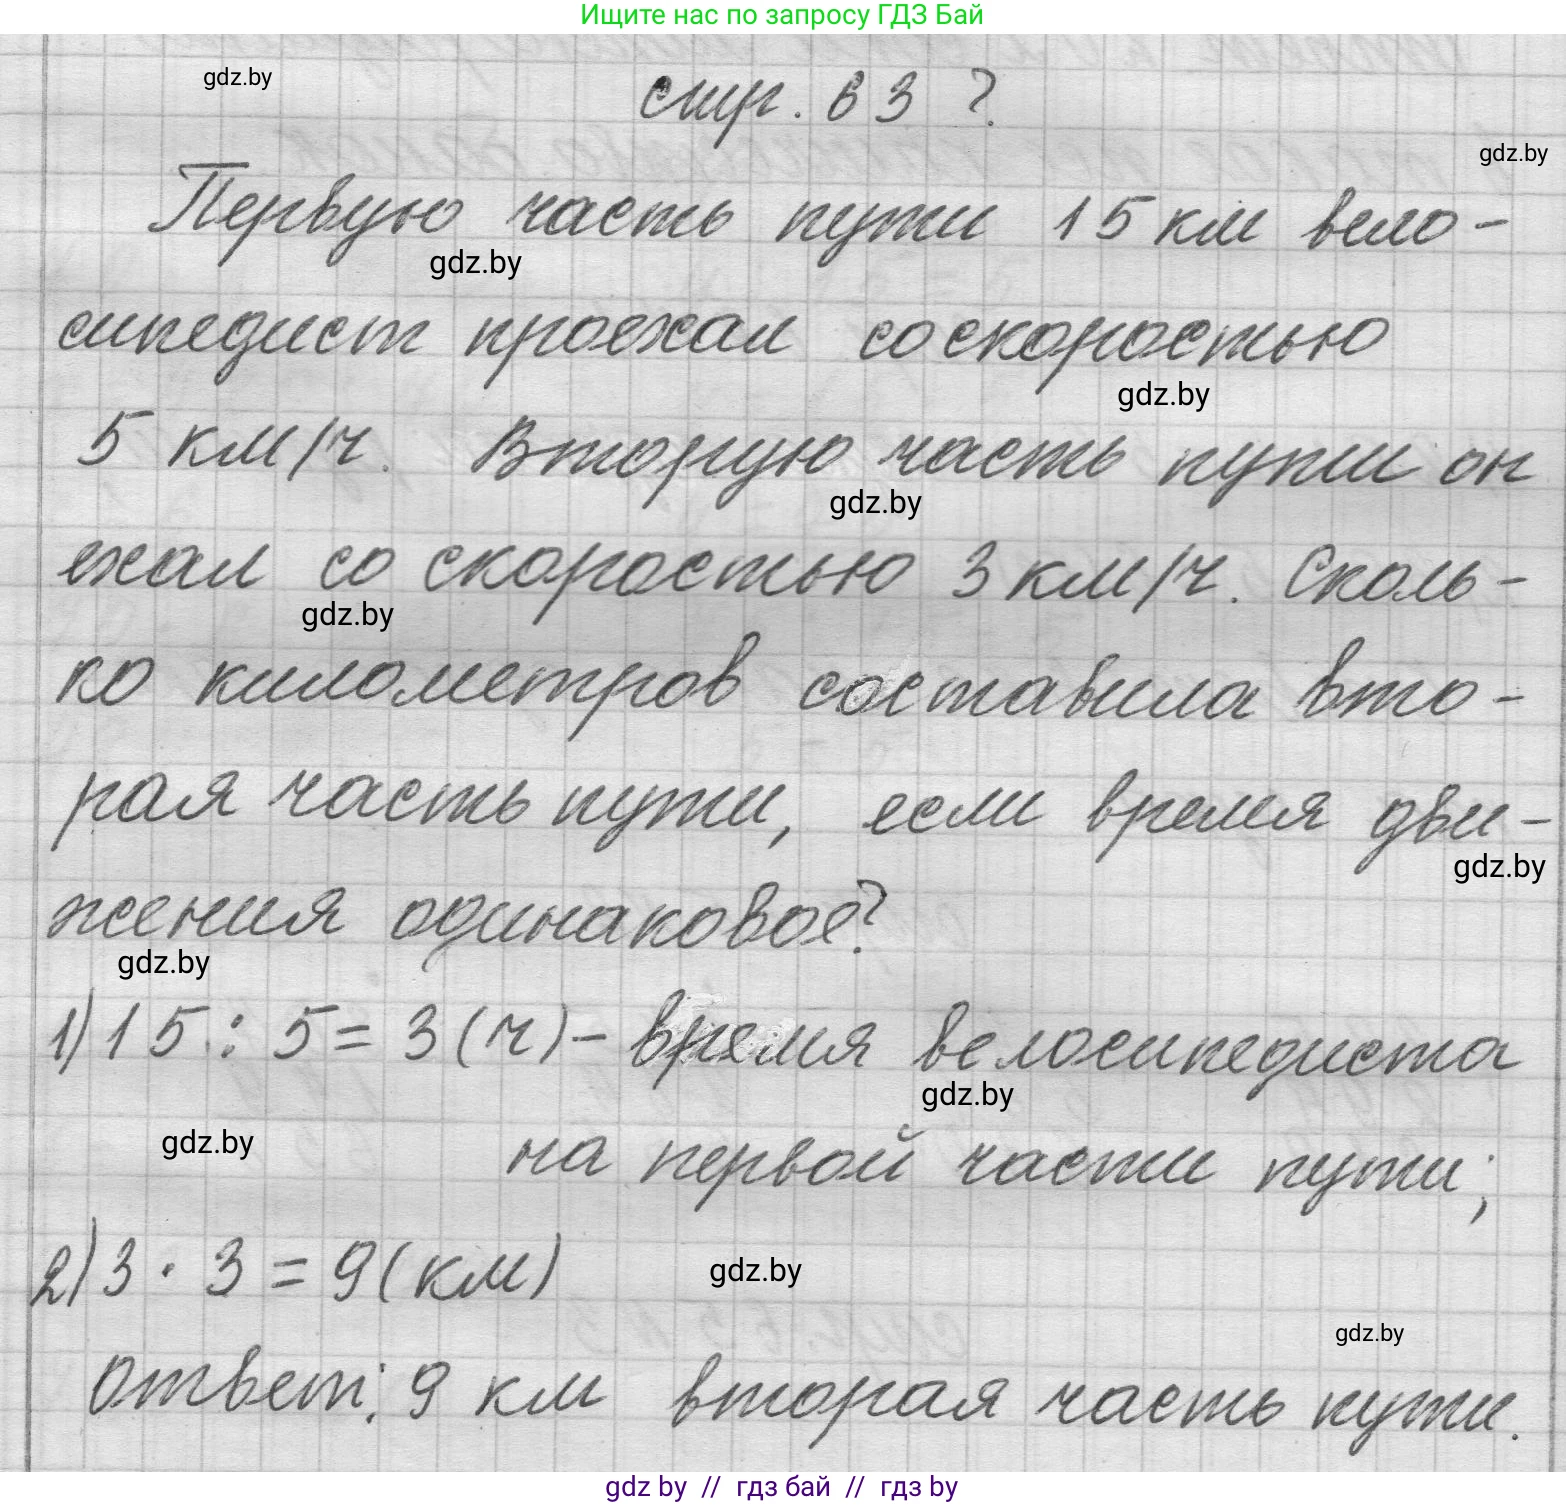 Ищите нас по запросу ГДЗ Бай
gdz.by
стр. 63 ?
gdz.by
Первую часть пути 15 км вело-
gdz.by
сипедист проехал со скоростью
gdz.by
5 км/ч. Вторую часть пути он
gdz.by
ехал со скоростью 3 км/ч. Сколь-
gdz.by
ко километров составила вто-
рая часть пути, если время дви-
gdz.by
жения одинаковое?
gdz.by
1) 15 : 5 = 3 (ч) - время велосипедиста
gdz.by
gdz.by
на первой части пути;
2) 3 · 3 = 9 (км)
gdz.by
gdz.by
Ответ: 9 км вторая часть пути.
gdz by // гдз бай // гдз by